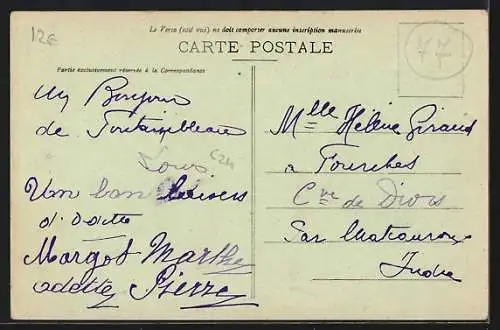 12€
Le Verso (côté vue) ne doit comporter aucune inscription manuscrite
CARTE POSTALE
77
Partie exclusivement réservée à la Correspondance
Un Bonjour
de Fontainebleau
C24
Louis
Un bon baisers
d'Odette
Margot Marthe
Odette Pierre
Mlle Hélène Giraud
a Fourches
Cne de Diors
Par Chateauroux
Indre